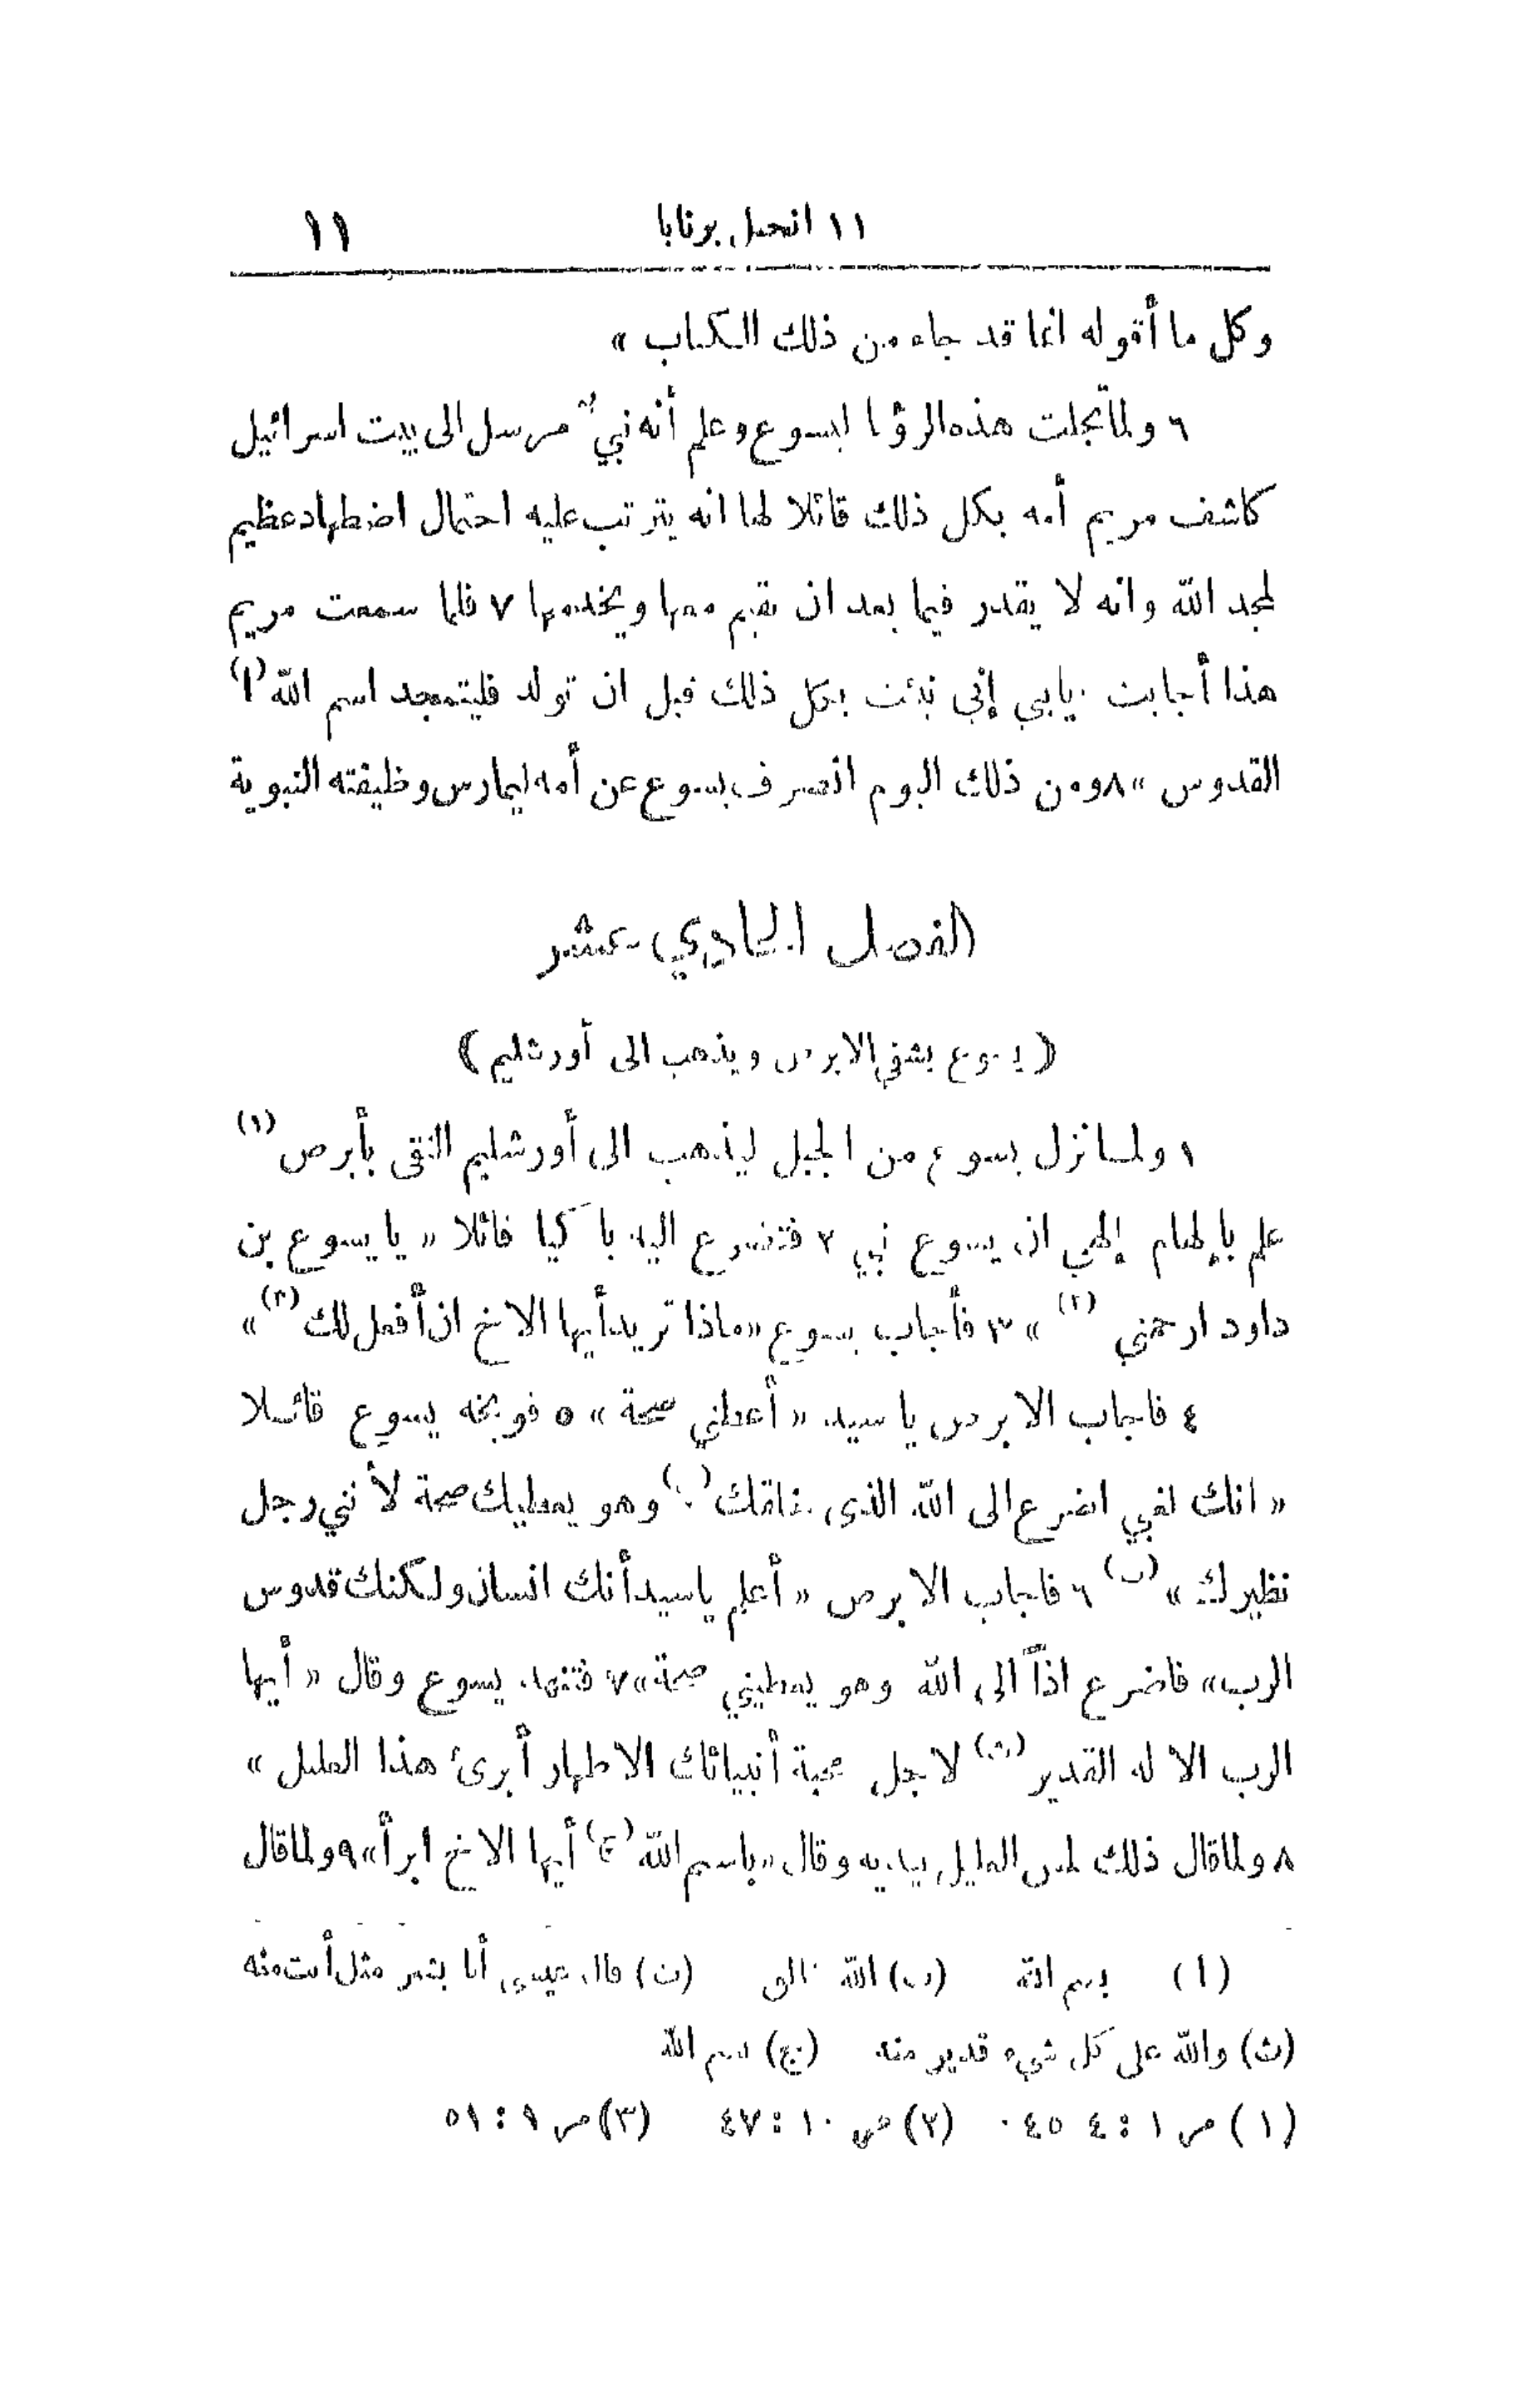 ١١ انجيل برنابا ١١
وكل ما أقوله انما قد جاء من ذلك الكتاب »
٦ ولما تجلت هذه الرؤيا ليسوع وعلم أنه نبيٌّ مرسل الى بيت اسرائيل
كاشف مريم أمه بكل ذلك قائلا لها انه يترتب عليه احتمال اضطهاد عظيم
لمجد الله وانه لا يقدر فيما بعد ان يقيم معها ويخدمها ٧ فلما سمعت مريم
هذا أجابت يابني إني نبئت بكل ذلك قبل ان تولد فليتمجد اسم الله (ا)
القدوس » ٨ ومن ذلك اليوم انصرف يسوع عن أمه ليمارس وظيفته النبوية
الفصل الحادي عشر
( يسوع يشفي الابرص ويذهب الى أورشليم )
١ ولما نزل يسوع من الجبل ليذهب الى أورشليم التقى بأبرص (١)
علم بإلهام إلهي ان يسوع نبي ٢ فتضرع اليه باكيا قائلا « يا يسوع بن
داود ارحمني (٢) » ٣ فأجاب يسوع « ماذا تريد أيها الاخ ان أفعل لك (٣) »
٤ فاجاب الابرص يا سيد « أعطني صحة » ٥ فوبخه يسوع قائلا
« انك لغبي اضرع الى الله الذي خلقك (ب) وهو يعطيك صحة لأنني رجل
نظيرك » (ت) ٦ فاجاب الابرص « أعلم ياسيد أنك انسان ولكنك قدوس
الرب » فاضرع اذاً الى الله وهو يعطيني صحة » ٧ فتنهد يسوع وقال « أيها
الرب الاله القدير (ث) لاجل محبة أنبيائك الاطهار أبرئ هذا العليل »
٨ ولما قال ذلك لمس العليل بيديه وقال « باسم الله (ج) أيها الاخ ابرأ » ٩ ولما قال
(ا) بسم الله (ب) الله تعالى (ت) قال عيسى أنا بشر مثل أنت منه
(ث) والله على كل شيء قدير منه (ج) بسم الله
(١) مر ١ : ٤ ٤٥ (٢) مر ١٠ : ٤٧ (٣) مر ٩ : ٥١